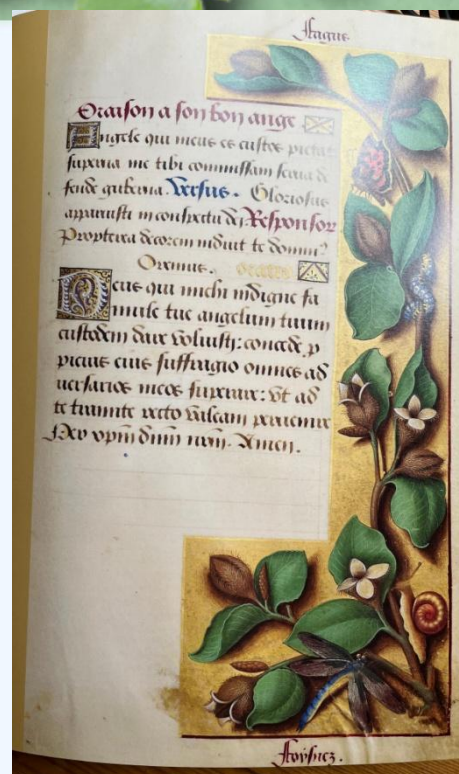 Fagus
Oraison a son bon ange
Angele qui meus es custos pieta
superna me tibi commissum serua de
fende guberna. Versus. Gloriosus
apparuisti in conspectu dei Responsor
Propterea decorem induit te domin9
Oremus. oratio
Deus qui michi indigne fa
mule tue angelum tuum
custodem dare voluisti: concede p
picius eius suffragio omnes ad
uersarios meos superare: vt ad
te tramite recto valeam peruenire
Per xpm dnm nrm. Amen.